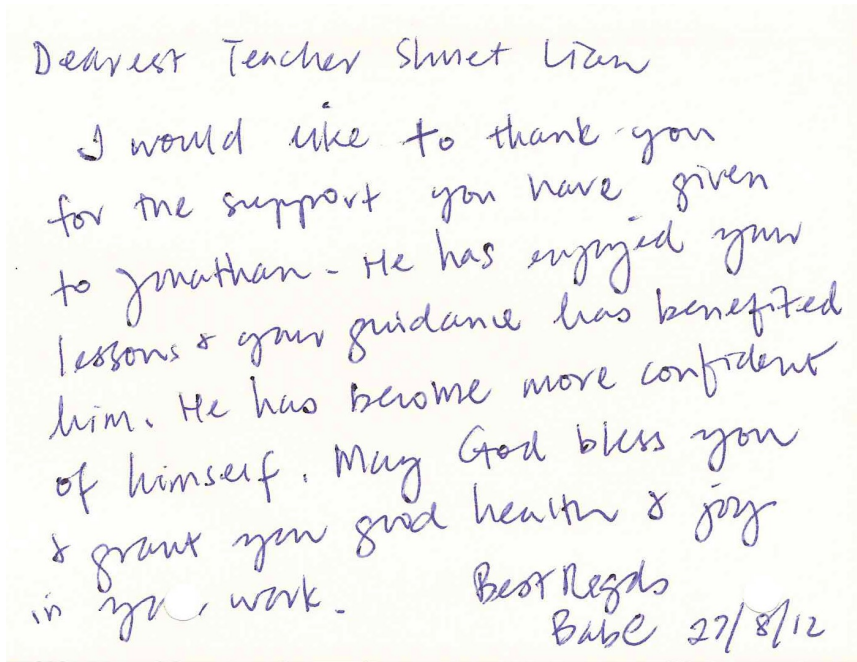 Dearest Teacher Shuet Lian
I would like to thank you
for the support you have given
to Jonathan - He has enjoyed your
lessons & your guidance has benefited
him. He has become more confident
of himself. May God bless you
& grant you good health & joy
in work.
Best Regds
Babe 27/8/12